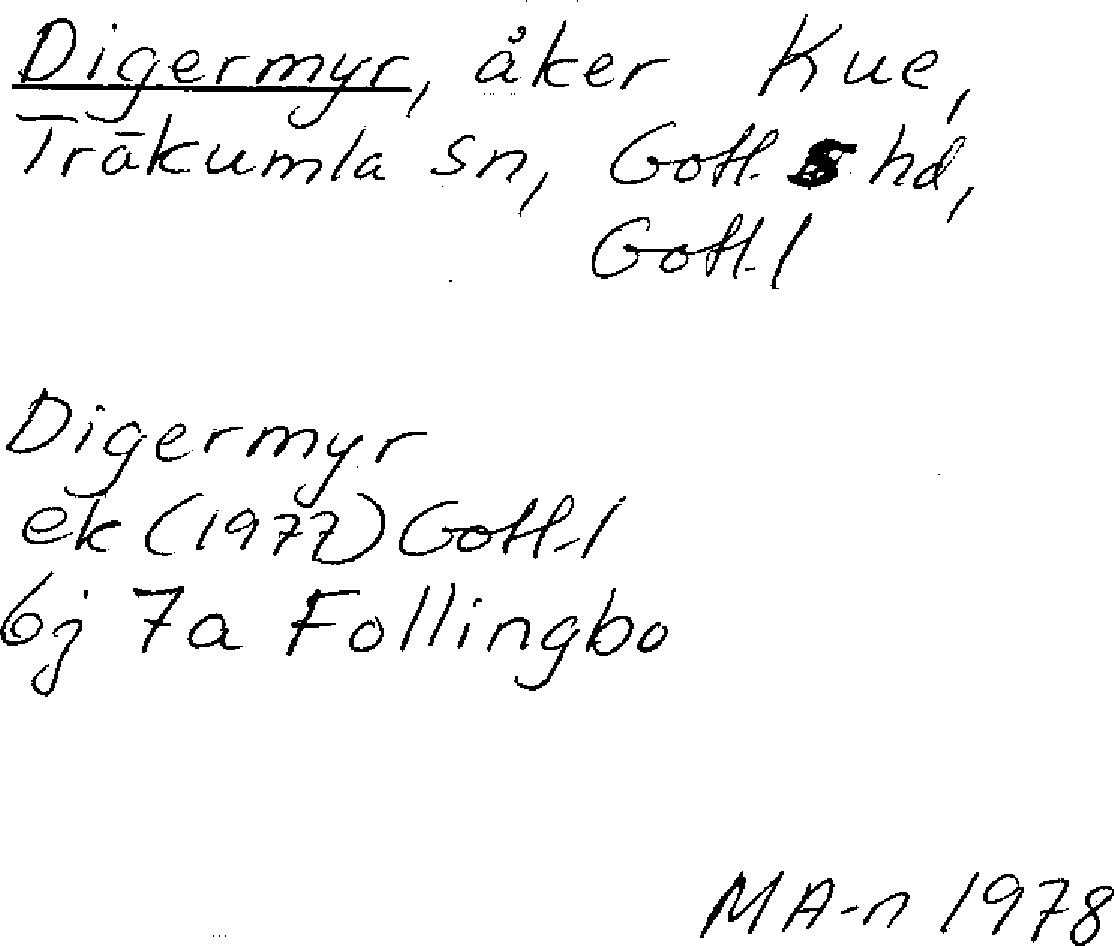 Digermyr, åker Kue,
Träkumla sn, Gotl. s hd,
Gotl. l
Digermyr
ek (1977) Gotl. l
6j 7a Follingbo
MA-n 1978